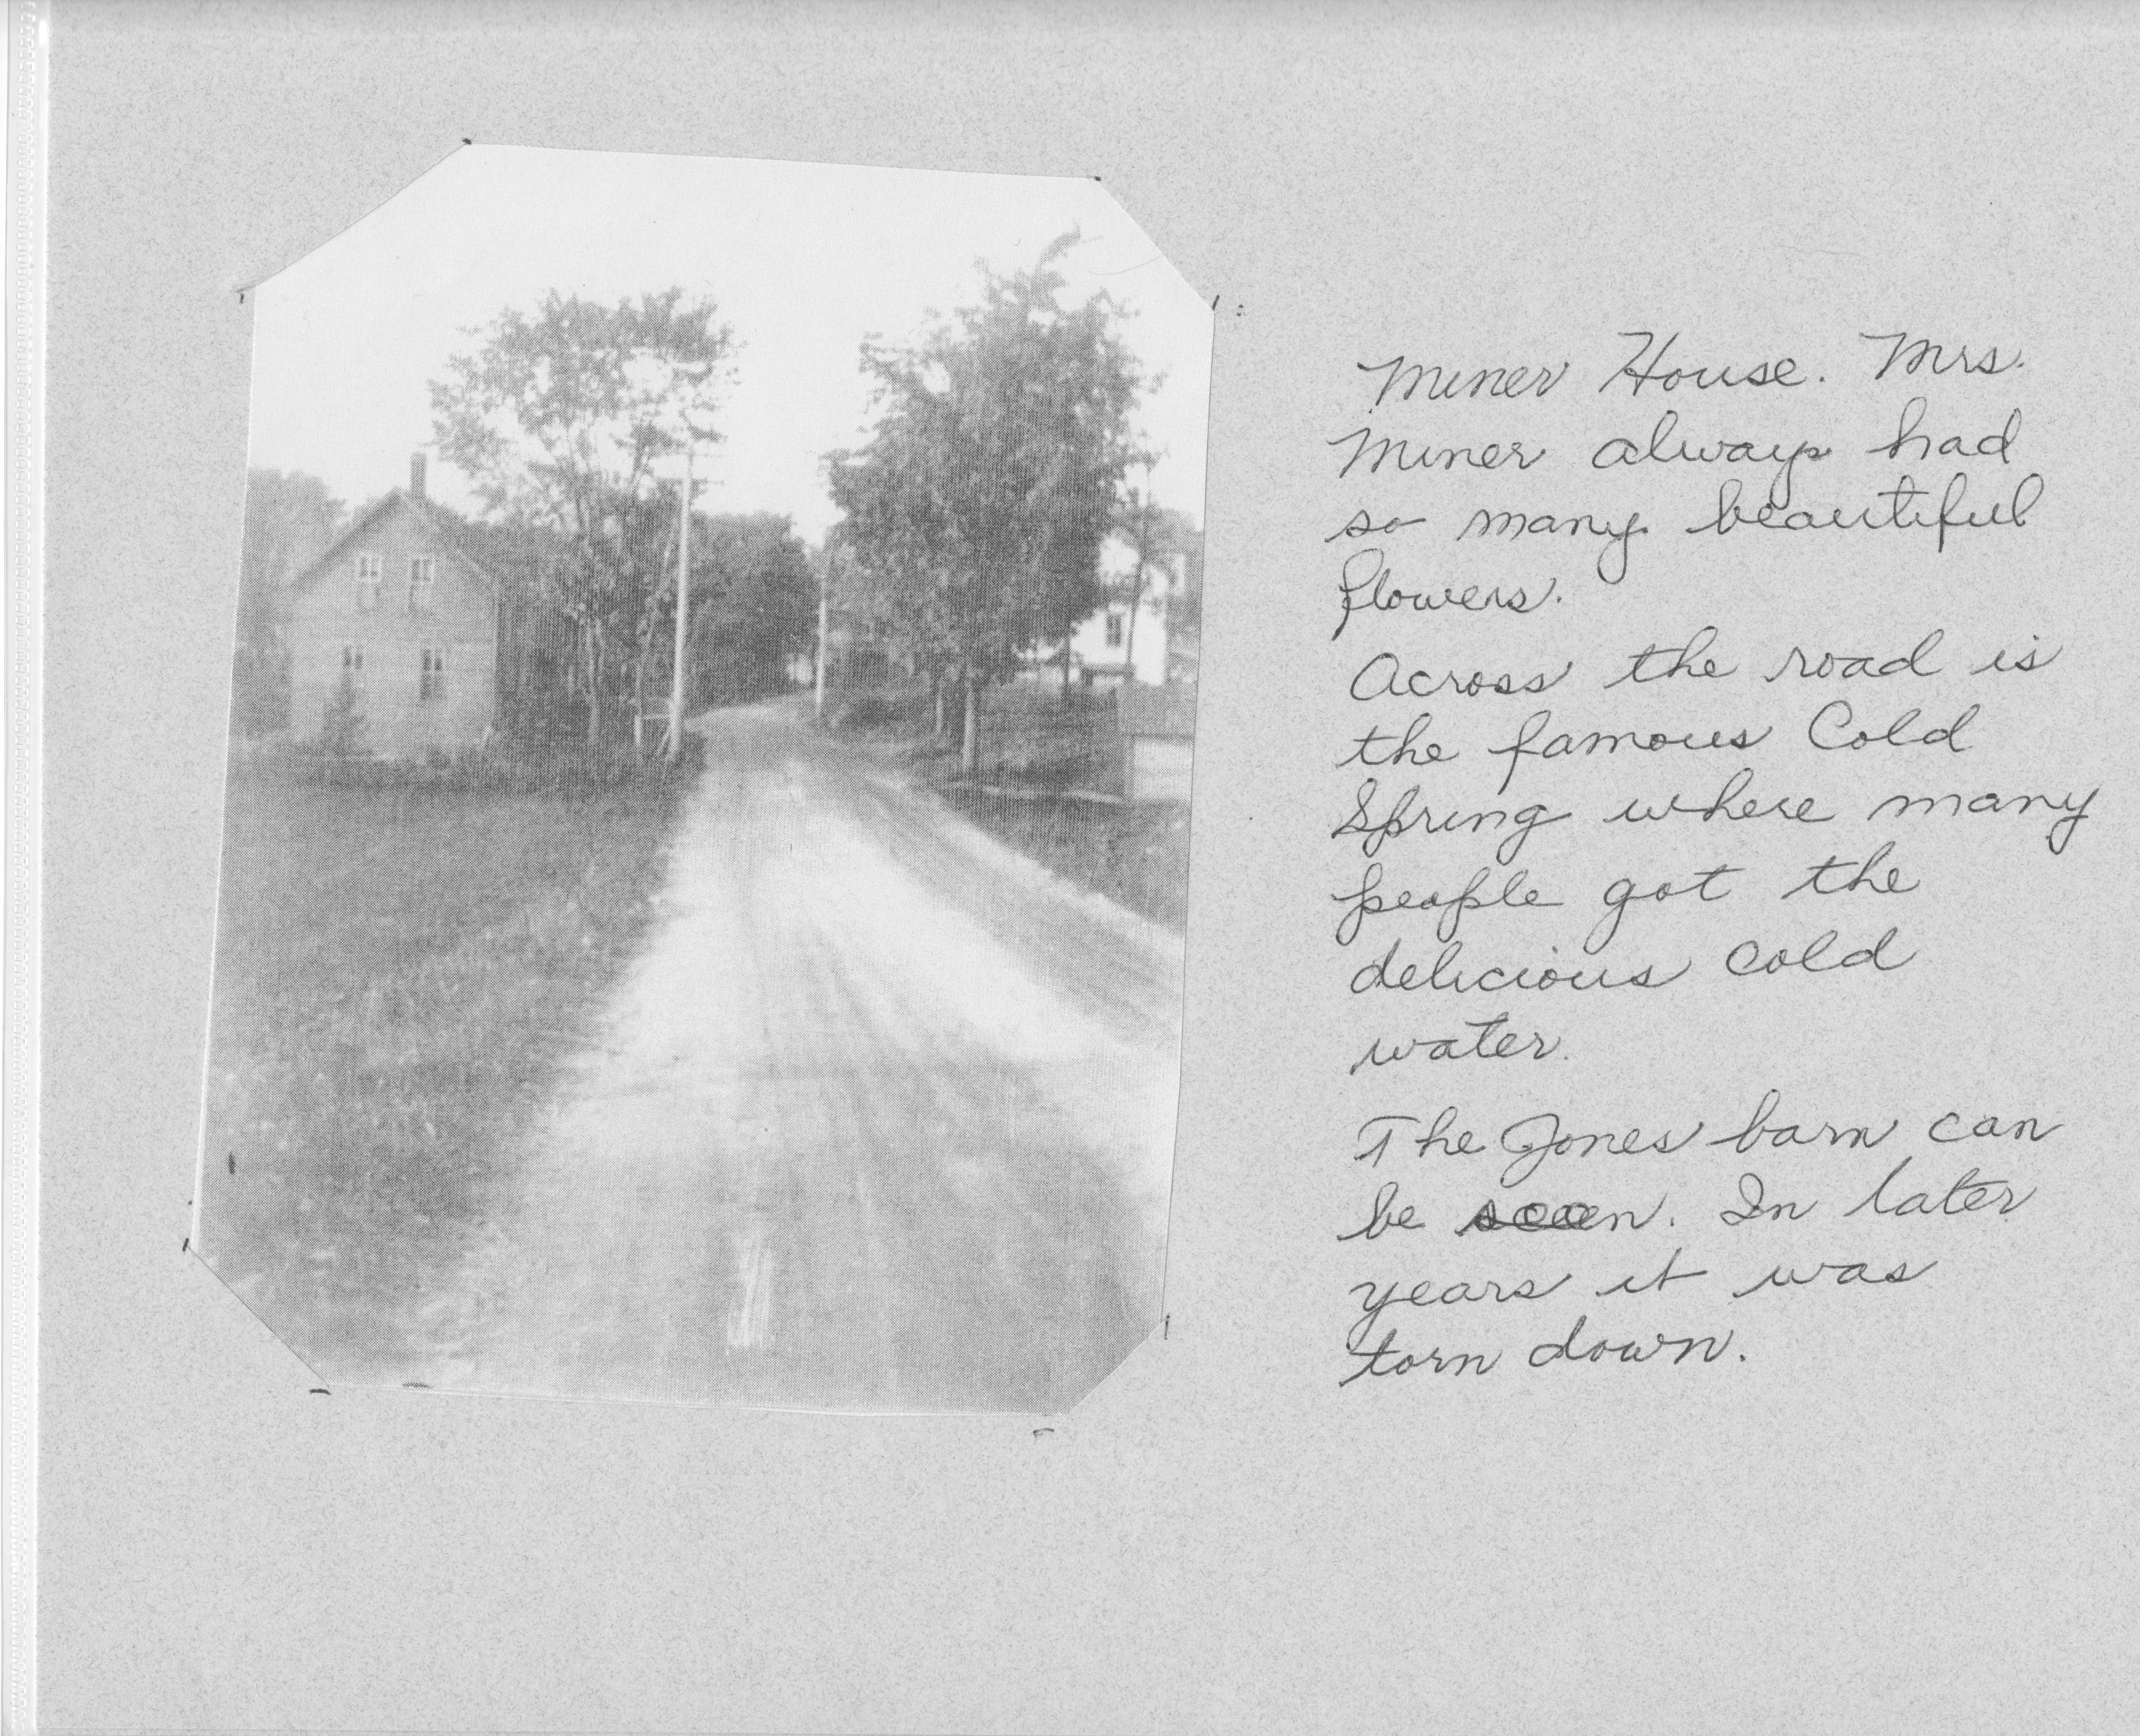 Miner House. Mrs.
Miner always had
so many beautiful
flowers.
Across the road is
the famous Cold
Spring where many
people got the
delicious cold
water.
The Jones barn can
be seen. In later
years it was
torn down.